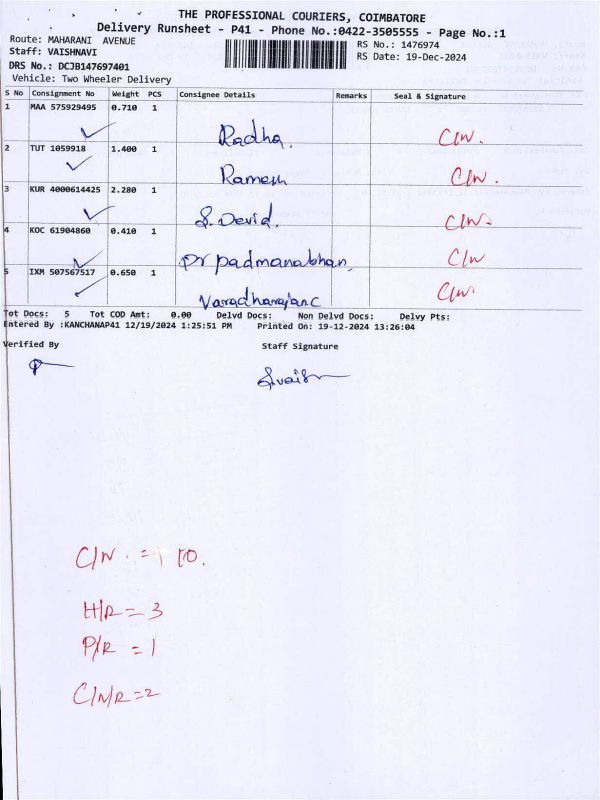 THE PROFESSIONAL COURIERS, COIMBATORE
Delivery Runsheet - P41 - Phone No.:0422-3505555 - Page No.:1
Route: MAHARANI AVENUE
RS No.: 1476974
Staff: VAISHNAVI
RS Date: 19-Dec-2024
DRS No.: DCJB147697401
Vehicle: Two Wheeler Delivery
S No Consignment No Weight PCS Consignee Details Remarks Seal & Signature
1 MAA 575929495 0.710 1
Radha. C/N.
2 TUT 1059918 1.400 1
Ramesh C/N.
3 KUR 4000614425 2.280 1
S. David. C/N.
4 KOC 61904860 0.410 1
Dr padmanabhan. C/N
5 IXM 507567517 0.650 1
Varadharajan C C/N.
Tot Docs: 5 Tot COD Amt: 0.00 Delvd Docs: Non Delvd Docs: Delvy Pts:
Entered By :KANCHANAP41 12/19/2024 1:25:51 PM Printed On: 19-12-2024 13:26:04
Verified By Staff Signature
C/N. = 10.
H/R = 3
P/R = 1
C/N/R = 2